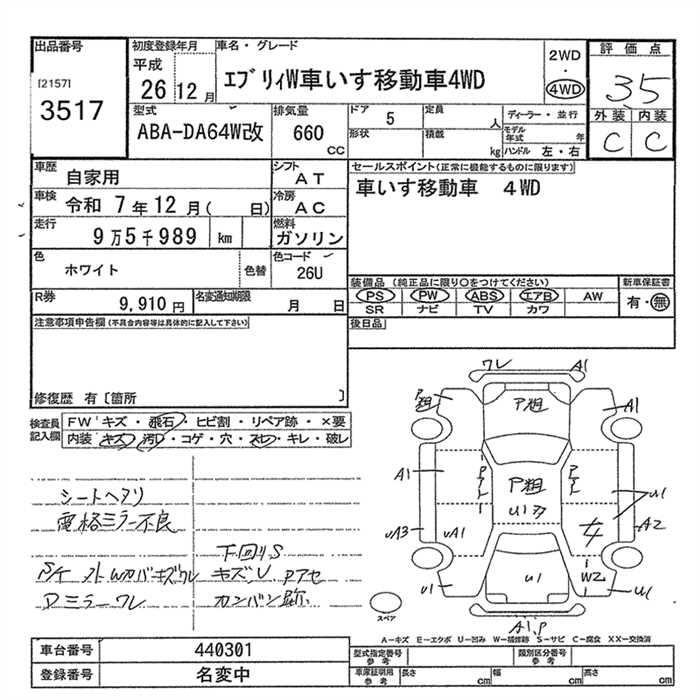 出品番号
[2157]
3517
初度登録年月
平成
26 12 月
車名・グレード
エブリィW車いす移動車4WD
2WD
・
4WD
評価点
3.5
外装 内装
C C
型式
ABA-DA64W改
排気量
660
cc
ドア 5
形状
定員 人
積載 kg
ディーラー・並行
モデル年式 年
ハンドル 左・右
車歴 自家用
シフト AT
車検 令和 7年12月( 日)
冷房 AC
走行 9万5千989 km
燃料 ガソリン
色 ホワイト
色替
色コード 26U
R券 9,910 円
名変通知期限 月 日
セールスポイント(正常に機能するものに限ります)
車いす移動車 4WD
装備品 (純正品に限り〇をつけてください)
新車保証書
PS PW ABS エアB AW
有・無
SR ナビ TV カワ
後日品
注意事項申告欄(不具合内容等は具体的に記入して下さい)
修復歴 有 [箇所 ]
検査員記入欄
FW キズ・飛石・ヒビ割・リペア跡・×要
内装 キズ・汚レ・コゲ・穴・スレ・キレ・破レ
シートヘタリ
電格ミラー不良
下回りS
キズU Pアセ
Dミラーワレ
カンバン跡
ワレ A1
P粗
A1
P粗
A1
P粗
U1
U1
A2
UA3
UA1
W2
U1
U1
A1.P
スペア
A－キズ E－エクボ U－凹み W－補修跡 S－サビ C－腐食 XX－交換済
車台番号 440301
登録番号 名変中
型式指定番号 参考
類別区分番号 参考
車庫証明用 参考
長さ cm
幅 cm
高さ cm